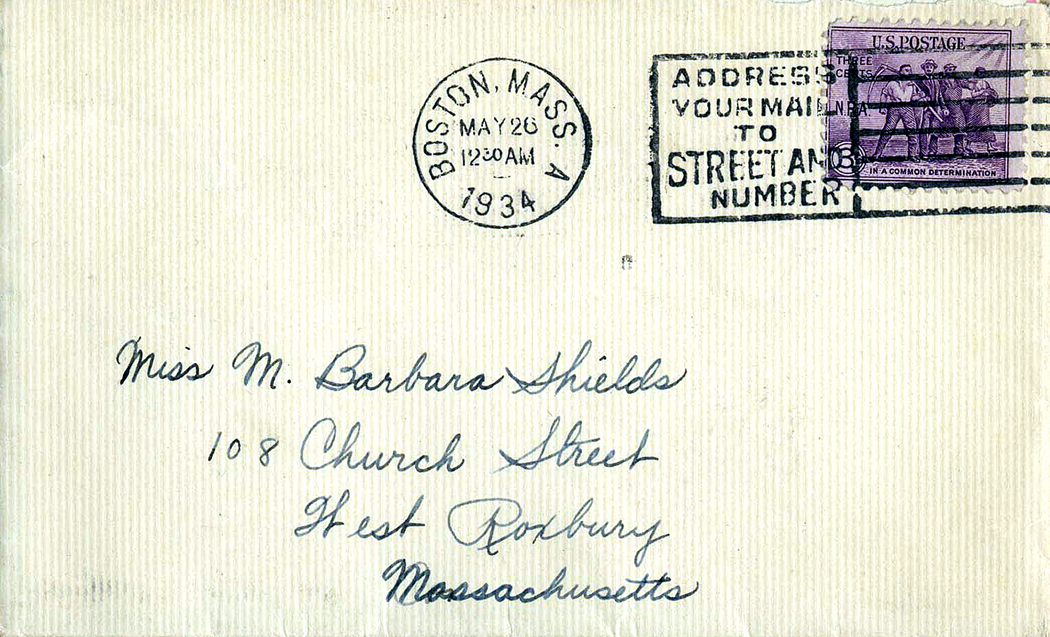 BOSTON, MASS. A
MAY 26
12 30 AM
1934
ADDRESS
YOUR MAIL
TO
STREET AND
NUMBER
U.S. POSTAGE
THREE
CENTS
N.R.A.
3
IN A COMMON DETERMINATION
Miss M. Barbara Shields
108 Church Street
West Roxbury
Massachusetts